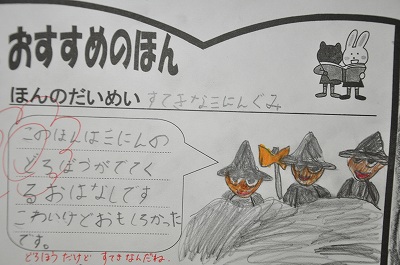 おすすめのほん
ほんのだいめい すてきな三にんぐみ
このほんは三にんの
どろぼうがでてく
るおはなしです
こわいけどおもしろかった
です。
どろぼうだけど すてきなんだね。